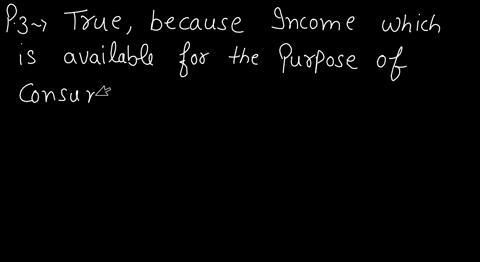 P.3→ True, because Income which
is available for the Purpose of
Consu